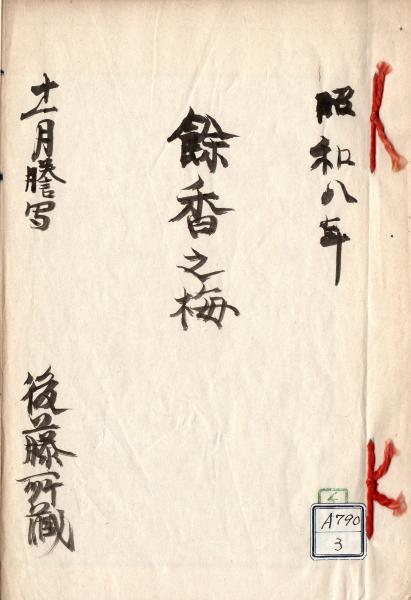 昭和八年
餘香之梅
十一月謄写
後藤所蔵
く
A790
3